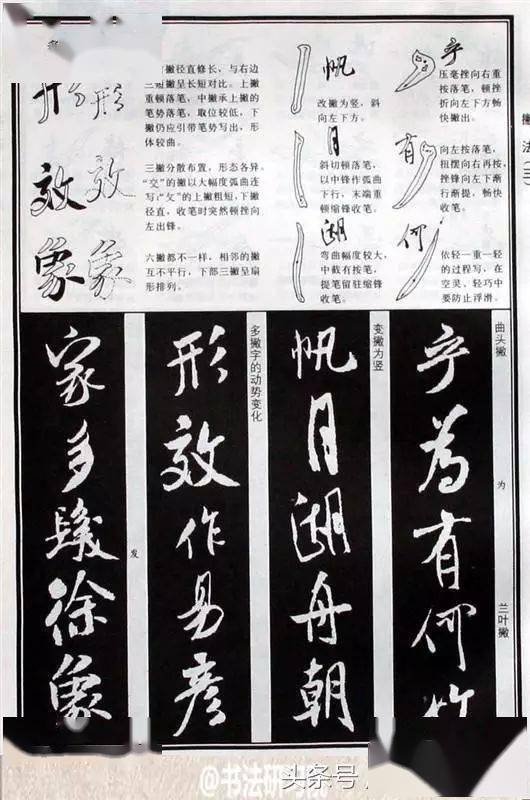 撇法
乎
压毫挫向右重
按落笔，顿挫
折向左下方畅
快撇出。
有
向左按落笔，
摆向右再按，
挫锋向左下渐
行渐提，畅快
收笔。
何
依轻一重一轻
的过程写，在
空灵、轻巧中
要防止浮滑。
帆
改撇为竖，斜
向左下方。
月
斜切顿落笔，
以中锋作弧曲
下行，末端重
顿缩锋收笔。
湖
弯曲幅度较大，
中截有按笔，
提笔留驻缩锋
收笔。
形形
撇径直修长，与右边
三短撇呈长短对比。上撇
重顿落笔，中撇承上撇的
笔势落笔，取位较低，下
撇仍应引带笔势写出，形
体较曲。
效效
三撇分散布置，形态各异。
“交”的撇以大幅度弧曲连
写；“攵”的上撇粗短，下撇
径直，收笔时突然顿挫向
左出锋。
象象
六撇都不一样，相邻的撇
互不平行，下部三撇呈扇
形排列。
曲头撇
为
兰叶撇
乎為有何
变撇为竖
帆月湖舟朝
多撇字的动势变化
形效作易彦
发
家多徐象
@书法研习
头条号